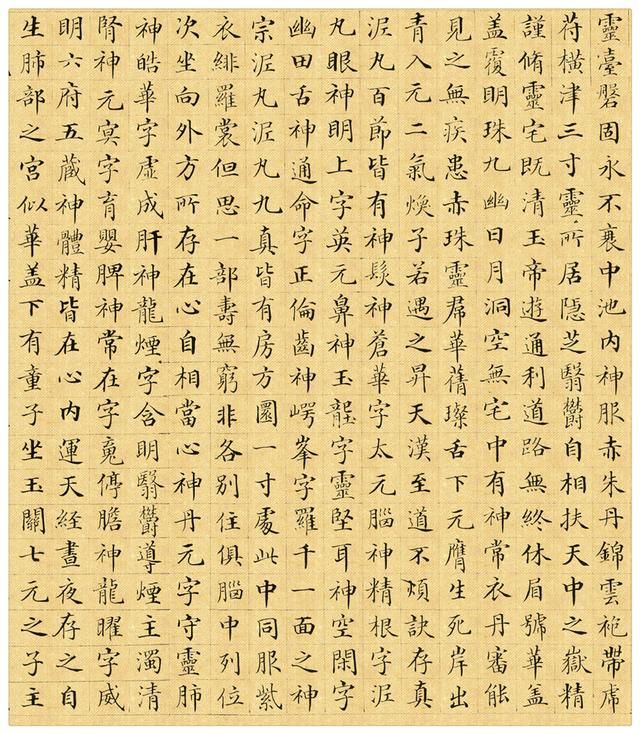 靈臺磐固永不衰中池内神服赤朱丹錦雲袍帶虎
苻橫津三寸靈所居隱芝翳欝自相扶天中之嶽精
謹脩靈宅既清玉帝遊通利道路無終休眉號華盖
盖覆明珠九幽日月洞空無宅中有神常衣丹審能
見之無疾患赤珠靈帬華蒨璨舌下元膺生死岸出
青入元二氣煥子若遇之昇天漢至道不煩訣存真
泥丸百節皆有神髮神蒼華字太元腦神精根字泥
丸眼神明上字英元鼻神玉壠字靈堅耳神空閑字
幽田舌神通命字正倫齒神崿峯字羅千一面之神
宗泥丸泥丸九真皆有房方圓一寸處此中同服紫
衣緋羅裳但思一部壽無窮非各別住俱腦中列位
次坐向外方所存在心自相當心神丹元字守靈肺
神皓華字虛成肝神龍煙字含明翳欝導煙主濁清
腎神元冥字育嬰脾神常在字魂停膽神龍曜字威
明六府五藏神體精皆在心内運天経晝夜存之自
生肺部之宫似華盖下有童子坐玉關七元之子主